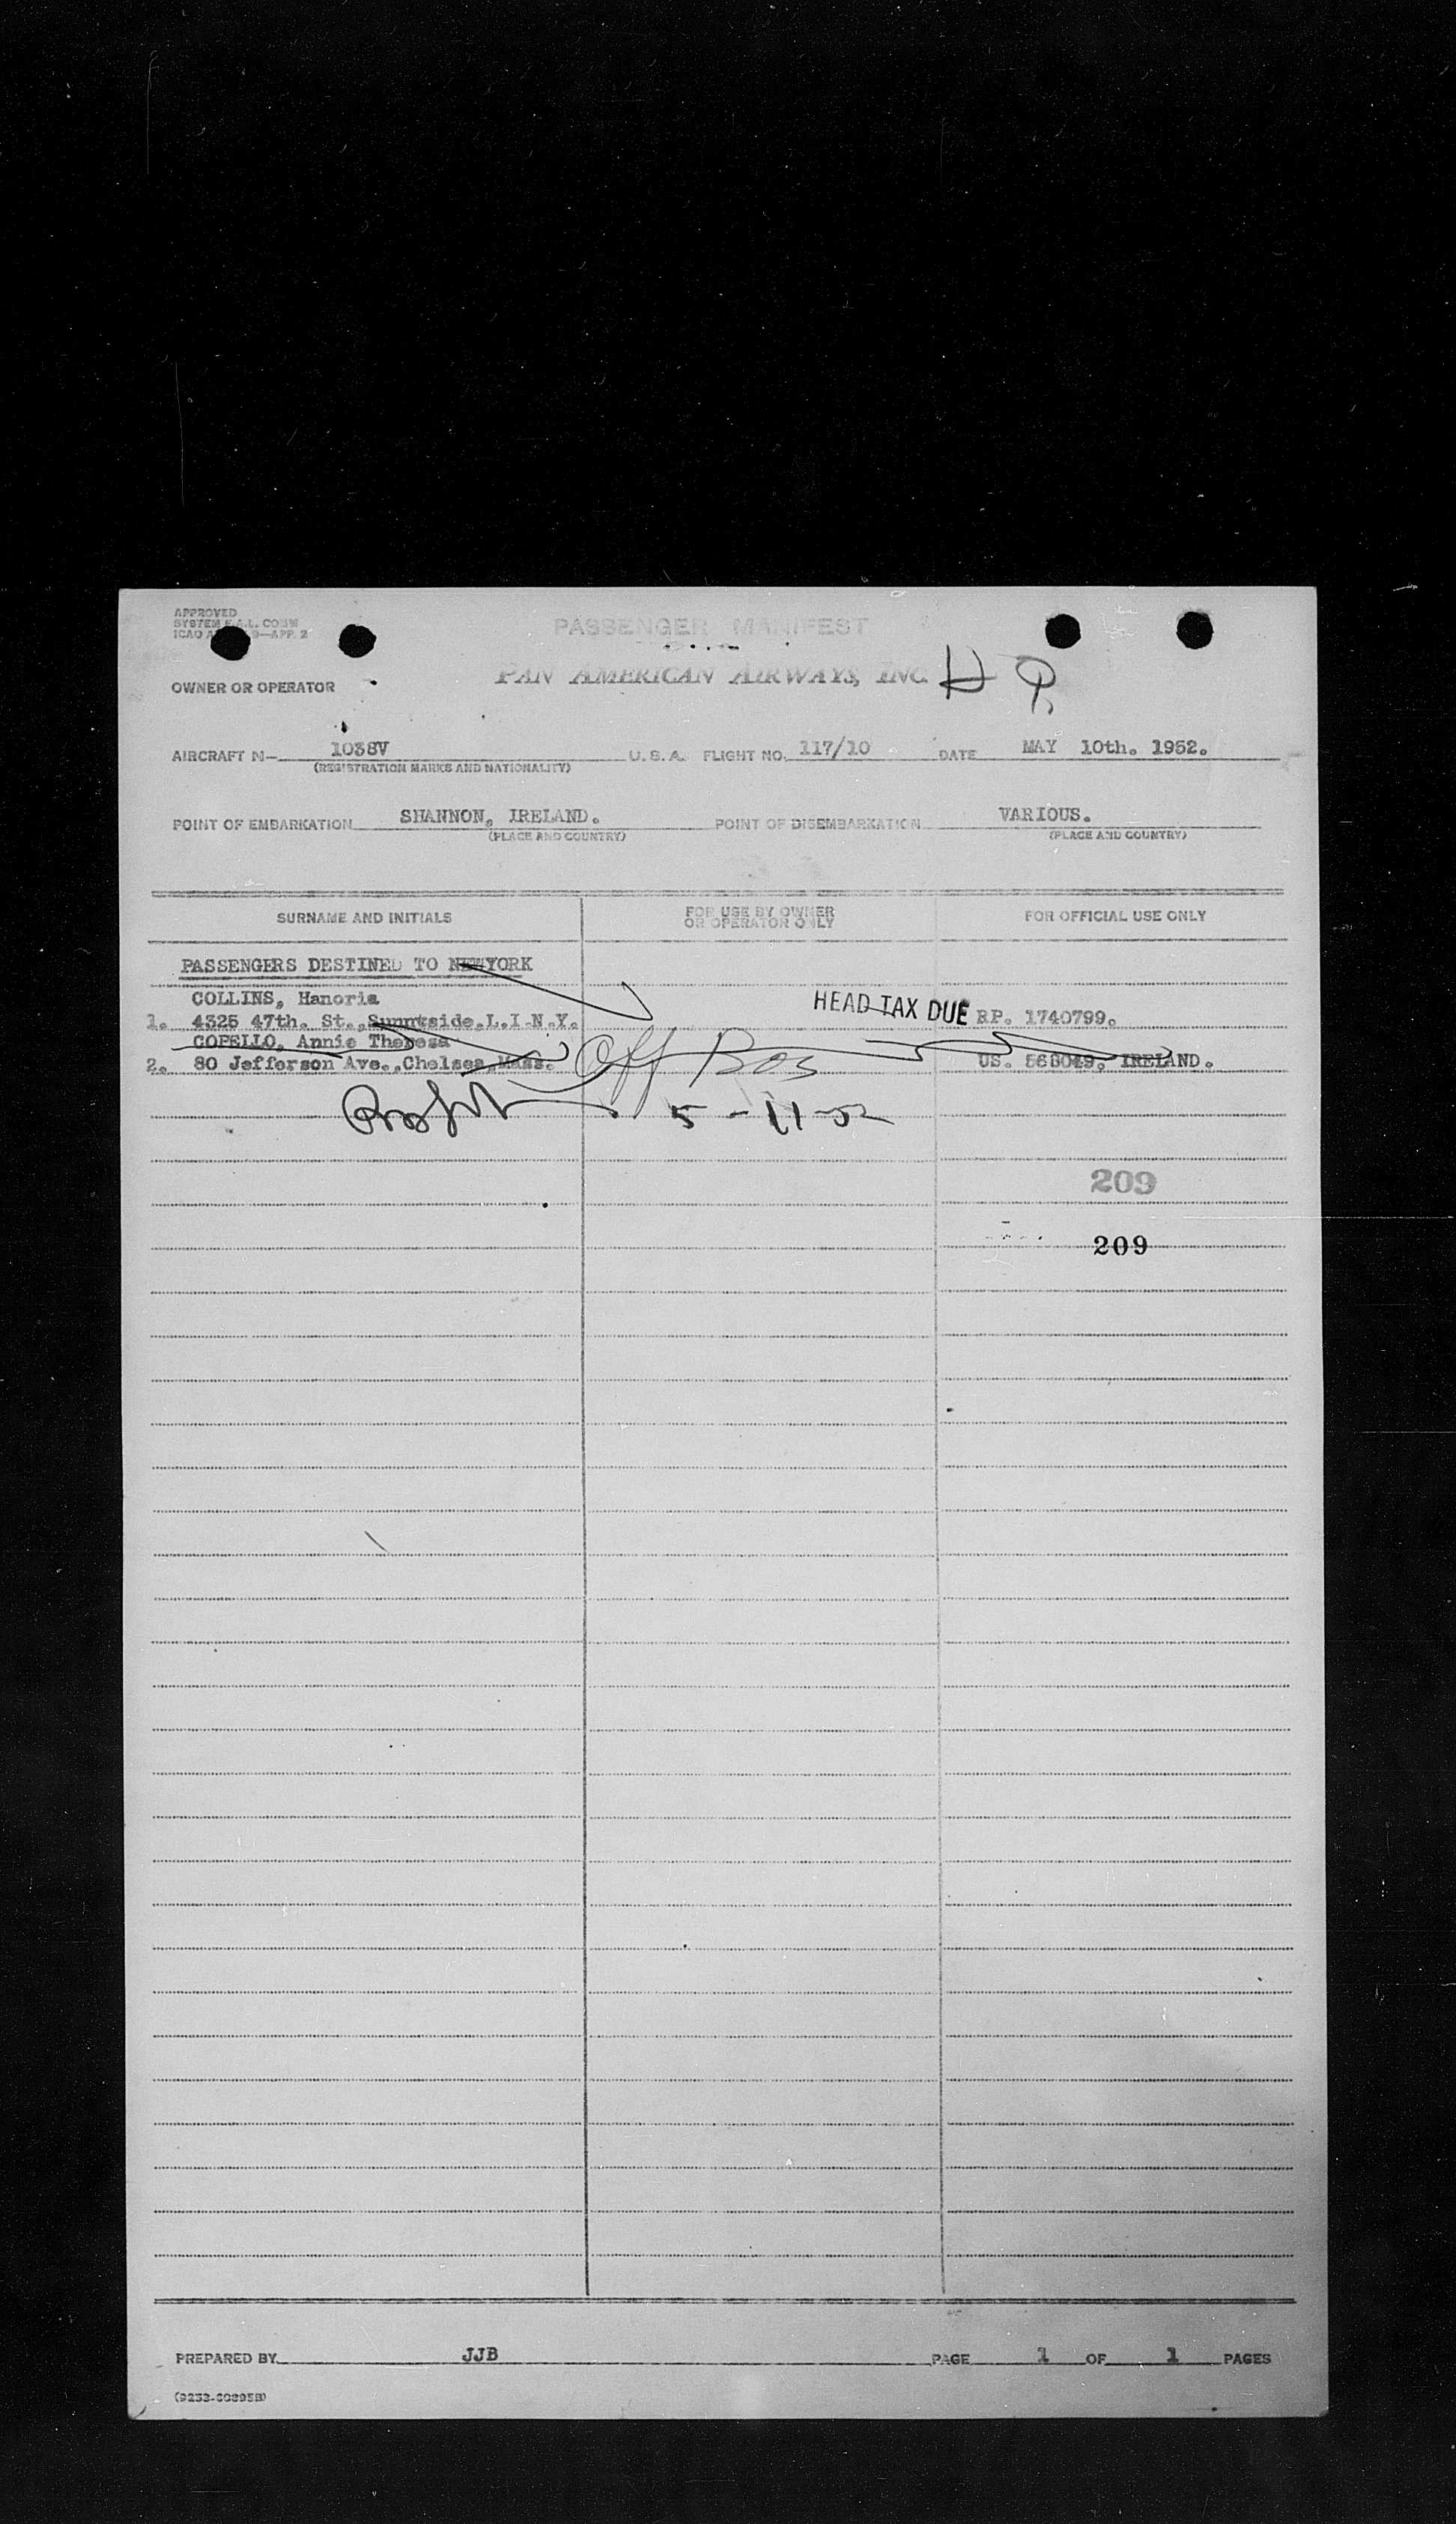 APPROVED
SYSTEM F.A.L. COMM
ICAO 9—APP. 2
PASSENGER MANIFEST
OWNER OR OPERATOR
PAN AMERICAN AIRWAYS, INC.
AIRCRAFT N- 1038V U.S.A. FLIGHT NO. 117/10 DATE MAY 10th. 1952.
(REGISTRATION MARKS AND NATIONALITY)
POINT OF EMBARKATION SHANNON, IRELAND. POINT OF DISEMBARKATION VARIOUS.
(PLACE AND COUNTRY) (PLACE AND COUNTRY)
SURNAME AND INITIALS FOR USE BY OWNER OR OPERATOR ONLY FOR OFFICIAL USE ONLY
PASSENGERS DESTINED TO NEWYORK
COLLINS, Hanoria
HEAD TAX DUE
1. 4325 47th. St.,Sunnyside,L.I.N.Y. RP. 1740799.
COPELLO, Annie Theresa
2. 80 Jefferson Ave.,Chelsea,Mass. Off Bos US. IRELAND.
5-11-52
209
209
PREPARED BY JJB PAGE 1 OF 1 PAGES